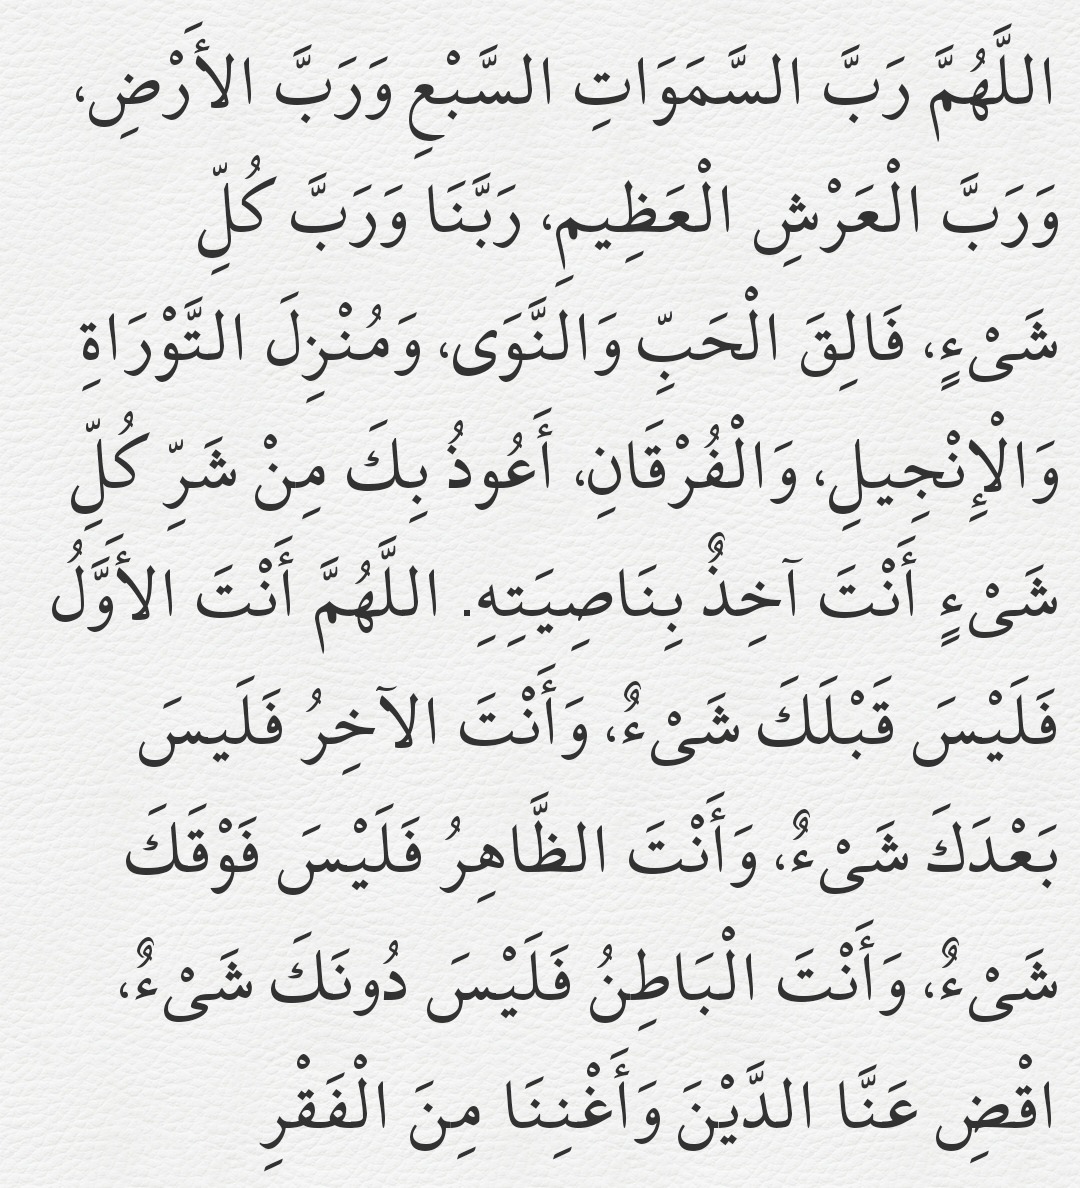 اللَّهُمَّ رَبَّ السَّمَوَاتِ السَّبْعِ وَرَبَّ الأَرْضِ،
وَرَبَّ الْعَرْشِ الْعَظِيمِ، رَبَّنَا وَرَبَّ كُلِّ
شَىْءٍ، فَالِقَ الْحَبِّ وَالنَّوَى، وَمُنْزِلَ التَّوْرَاةِ
وَالْإِنْجِيلِ، وَالْفُرْقَانِ، أَعُوذُ بِكَ مِنْ شَرِّ كُلِّ
شَىْءٍ أَنْتَ آخِذٌ بِنَاصِيَتِهِ. اللَّهُمَّ أَنْتَ الأَوَّلُ
فَلَيْسَ قَبْلَكَ شَىْءٌ، وَأَنْتَ الآخِرُ فَلَيسَ
بَعْدَكَ شَىْءٌ، وَأَنْتَ الظَّاهِرُ فَلَيْسَ فَوْقَكَ
شَىْءٌ، وَأَنْتَ الْبَاطِنُ فَلَيْسَ دُونَكَ شَىْءٌ،
اقْضِ عَنَّا الدَّيْنَ وَأَغْنِنَا مِنَ الْفَقْرِ